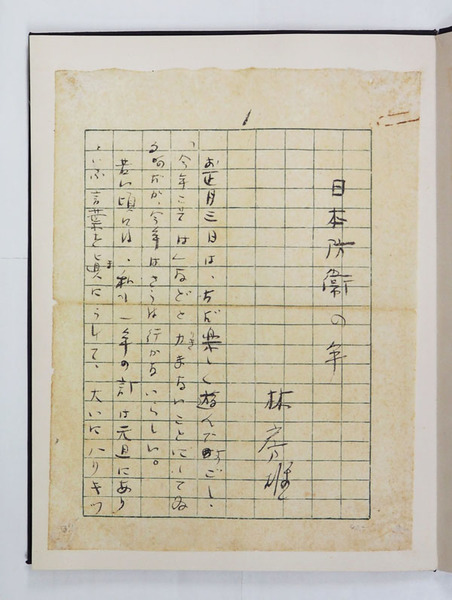 1
日本防衛の年
林房雄
お正月三日は、ただ楽しく遊んですごし、
「今年こそは」などと力まないことにしてゐ
るのだが、今年はさうは行かないらしい。
若い頃には、私も一年の計は元旦にあり
といふ言葉を真にうけて、大いにハリキつ